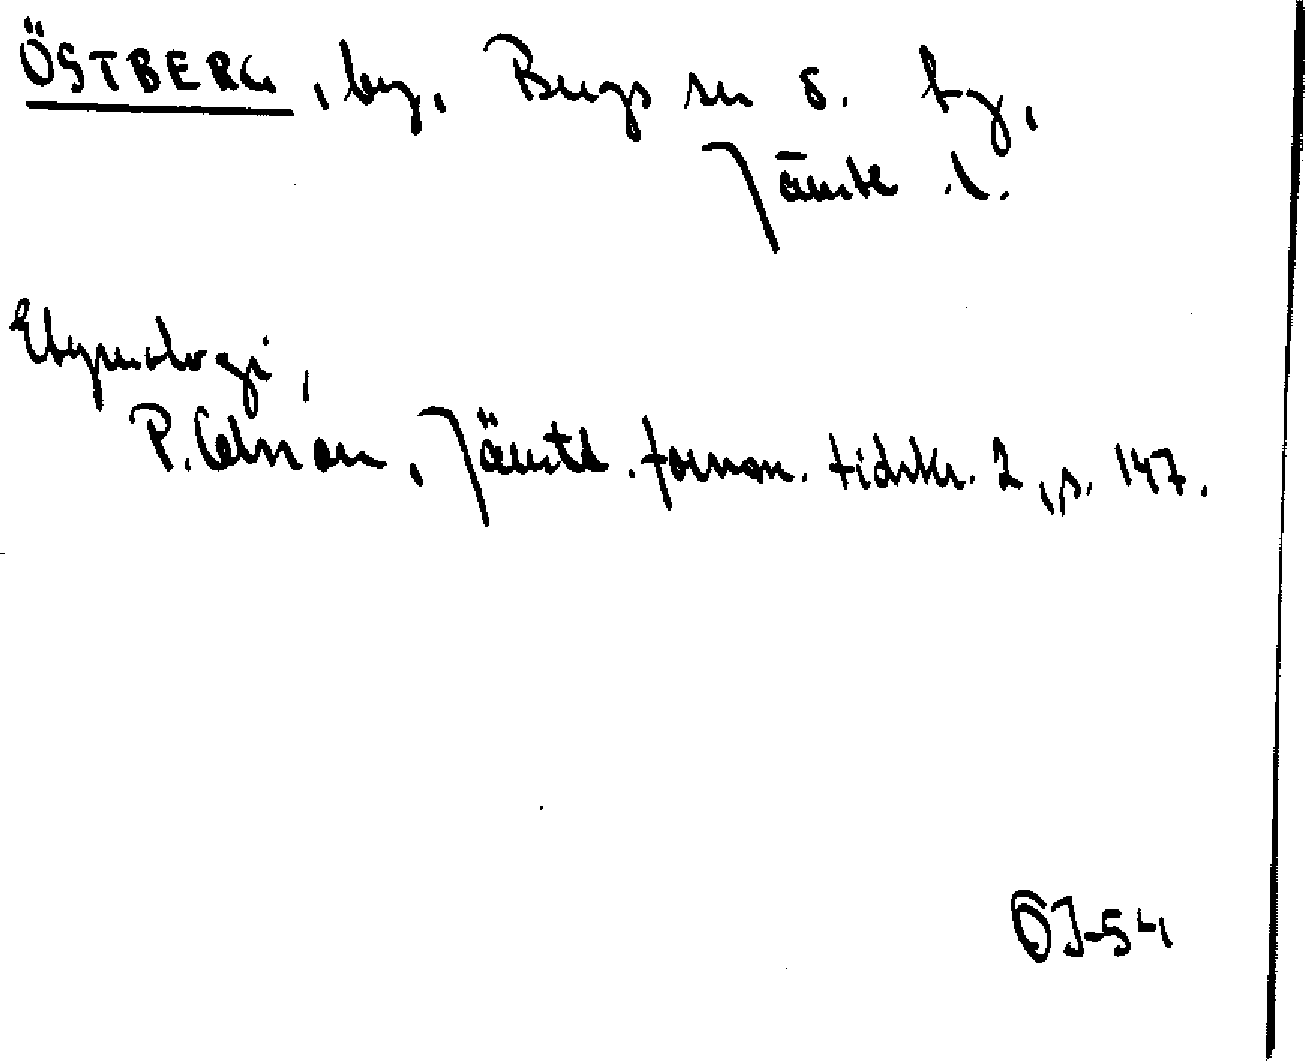 ÖSTBERG, by, Bergs sn o. tg,
Jämtl. l.
Etymologi,
P. Olsson, Jämtl. fornm. tidskr. 2, s. 147.
ÖJ-54